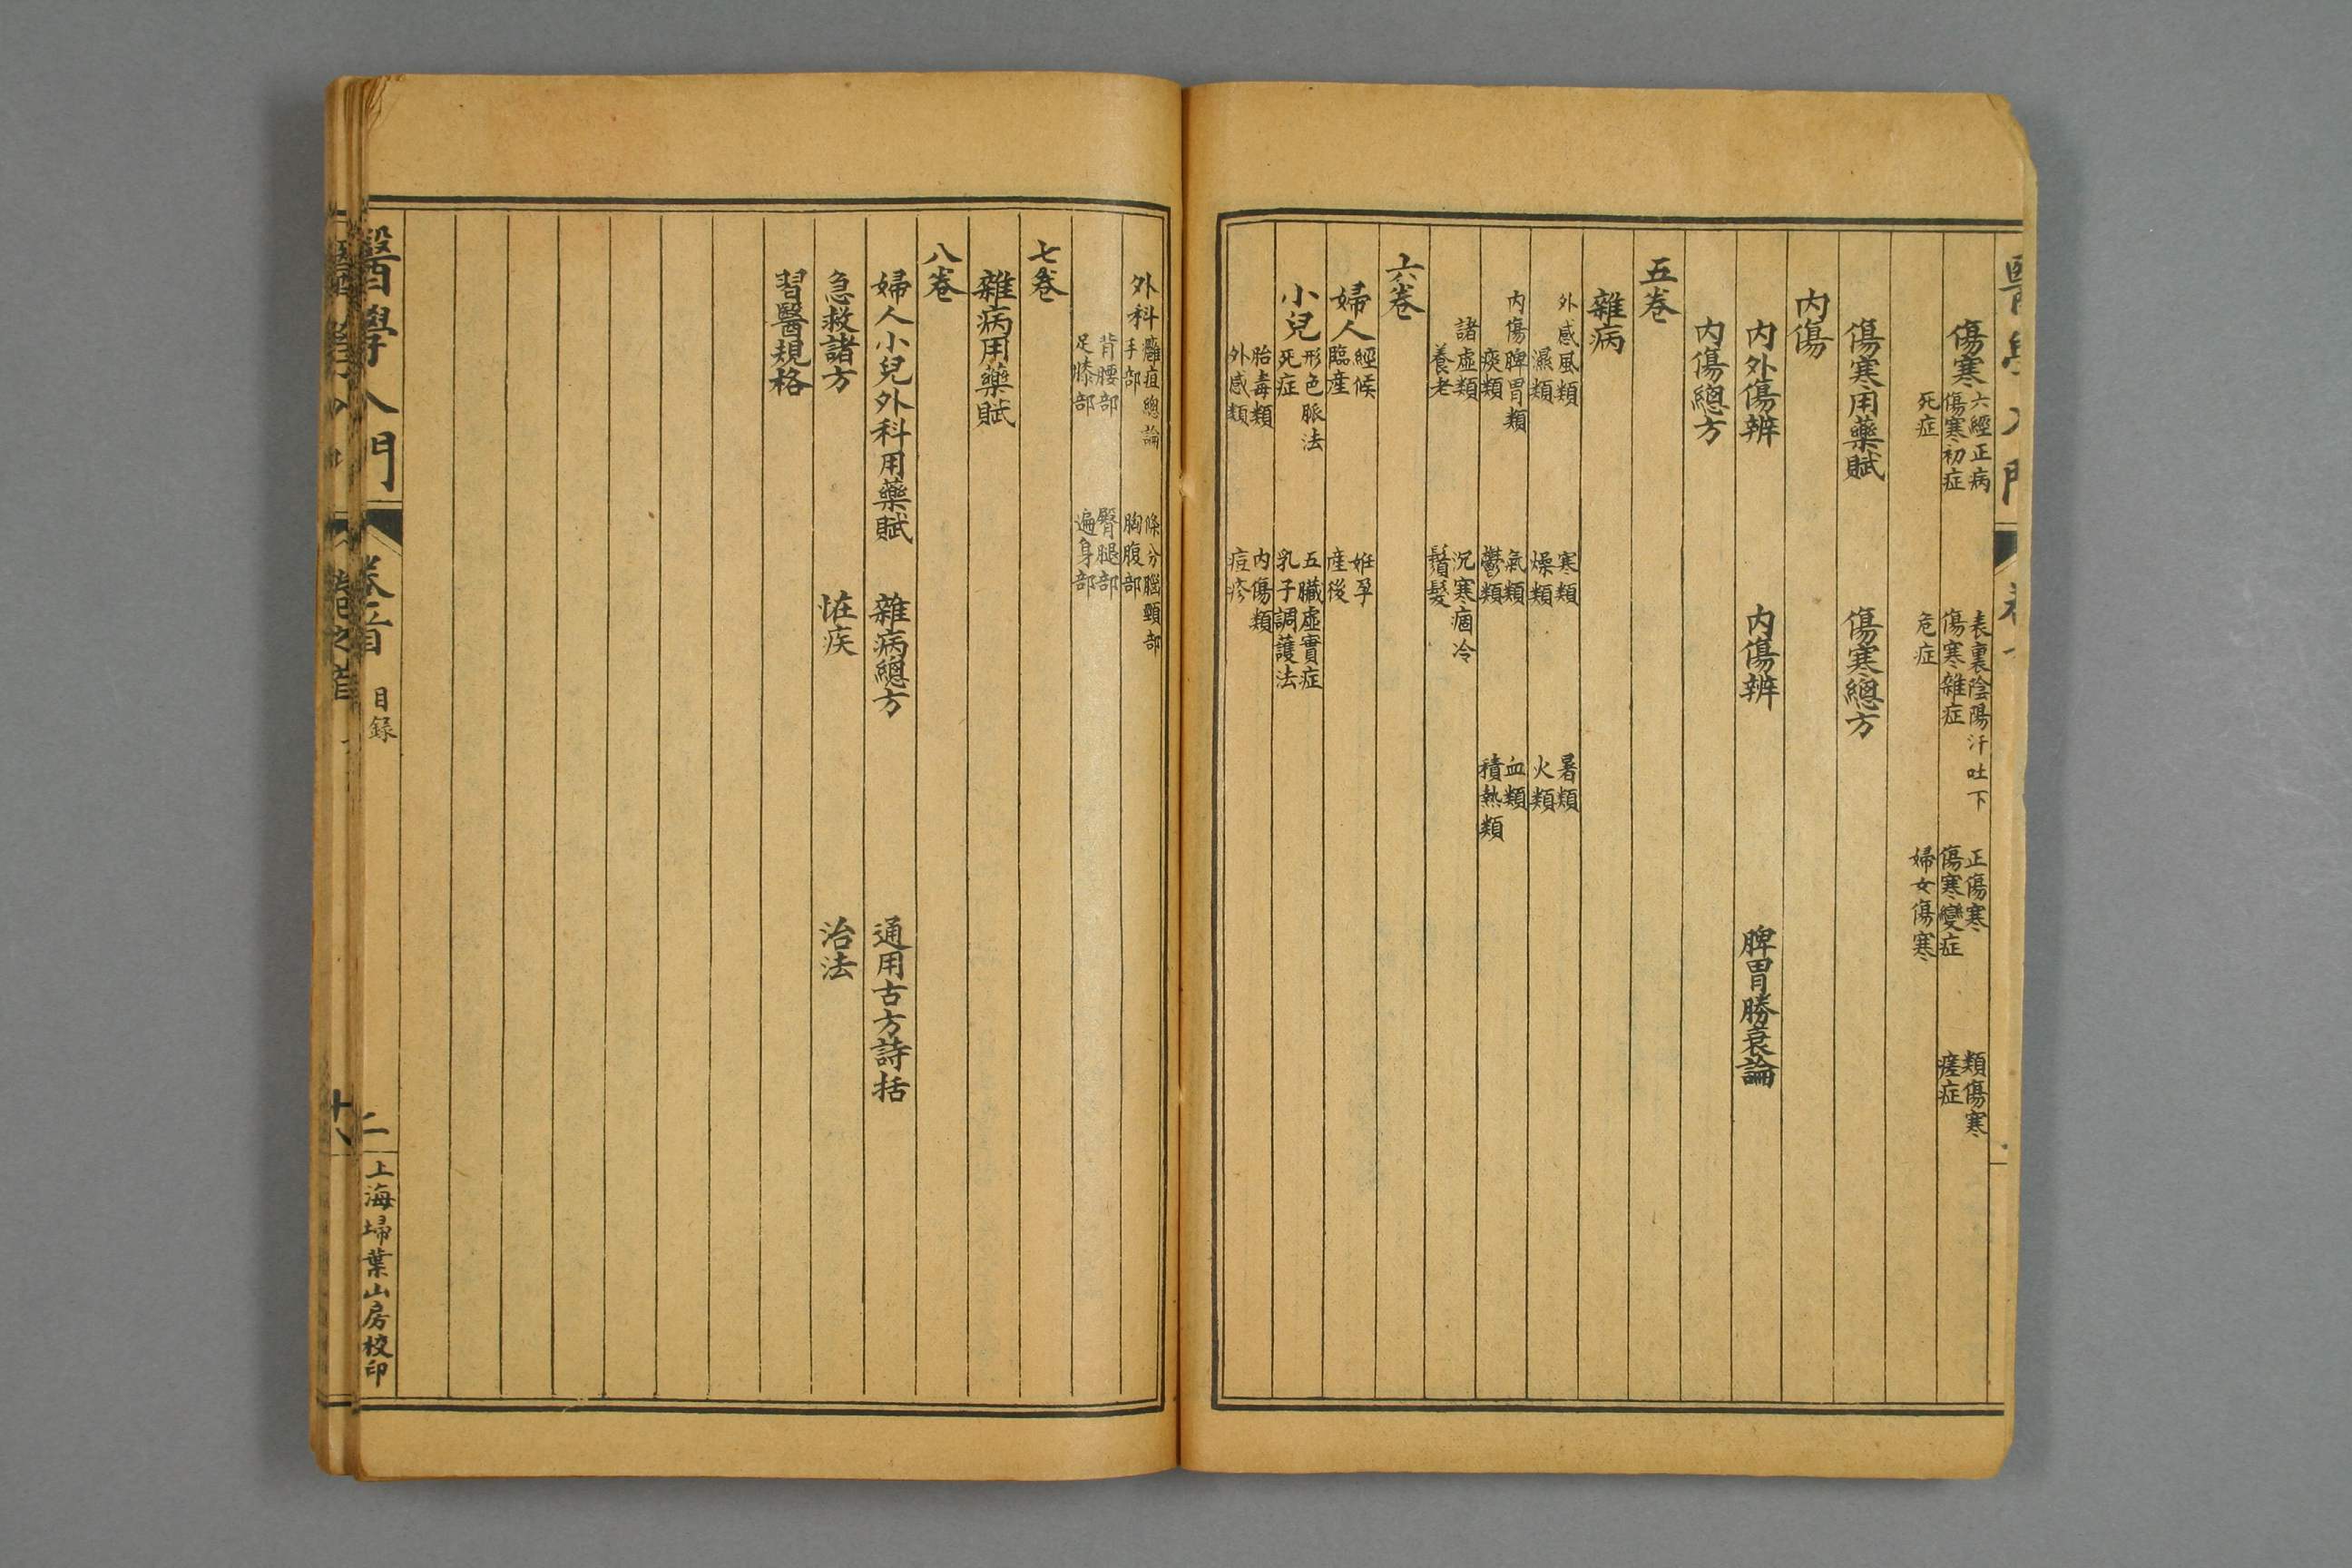 傷寒
六經正病 表裏陰陽汗吐下 正傷寒 類傷寒
傷寒初症 傷寒雜症 傷寒變症 瘥症
死症 危症 婦女傷寒
傷寒用藥賦 傷寒總方
內傷
內外傷辨 內傷辨 脾胃勝衰論
內傷總方
五卷
雜病
外感風類 寒類 暑類
濕類 燥類 火類
內傷脾胃類 氣類 血類
痰類 鬱類 積熱類
諸虛類 沉寒痼冷
養老 鬚髮
六卷
婦人
經候 妊孕
臨產 產後
小兒
形色脈法 五臟虛實症
死症 乳子調護法
胎毒類 內傷類
外感類 痘疹
外科
癰疽總論 條分腦頸部
手部 胸腹部
背腰部 臀腿部
足膝部 遍身部
七卷
雜病用藥賦
八卷
婦人小兒外科用藥賦 雜病總方 通用古方詩括
急救諸方 怪疾 治法
習醫規格
醫學入門 卷首 目錄 二 上海埽葉山房校印